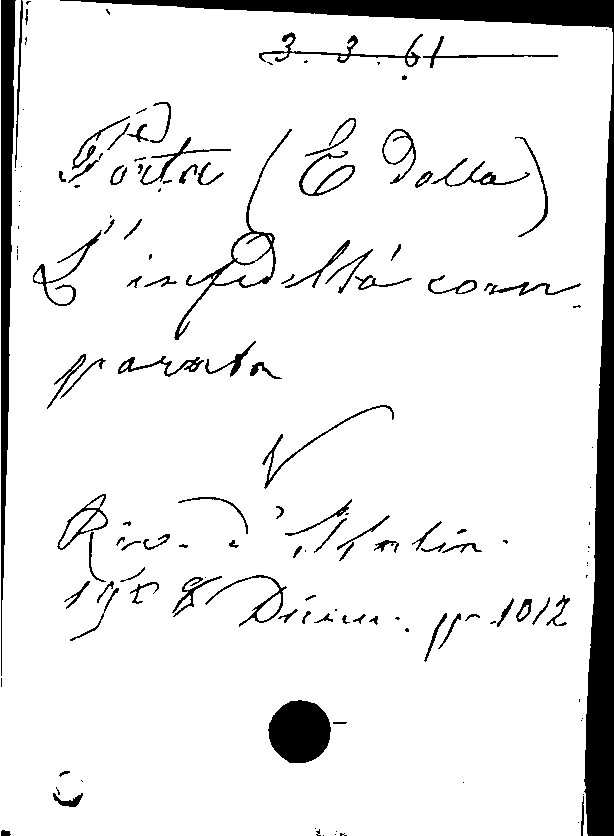 3.3.61
Porta (E Dalla)
L'infedeltà com-
parata
Riv. d'Italia.
Dicem. pp. 1012